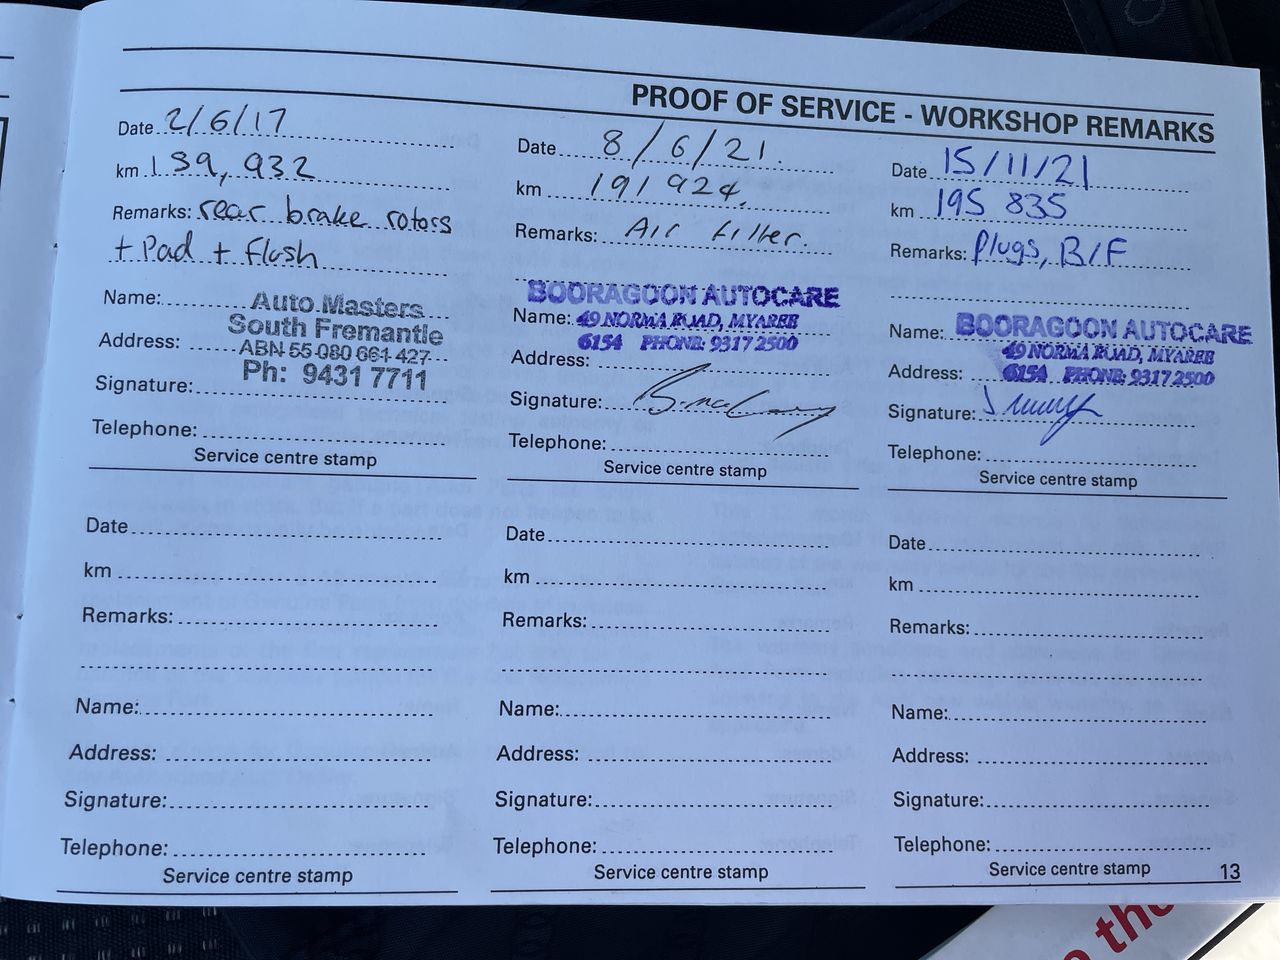 PROOF OF SERVICE - WORKSHOP REMARKS
Date 2/6/17
km 159,932
Remarks: rear brake rotors
+ Pad + flush
Name:
Address:
Auto Masters
South Fremantle
ABN 55 080 661 427
Ph: 9431 7711
Signature:
Telephone:
Service centre stamp
Date 8/6/21.
km 191 924.
Remarks: Air Filter.
BOORAGOON AUTOCARE
Name: 49 NORMA ROAD, MYAREE
6154 PHONE: 9317 2500
Address:
Signature:
Telephone:
Service centre stamp
Date 15/11/21
km 195 835
Remarks: Plugs, B/F
Name: BOORAGOON AUTOCARE
49 NORMA ROAD, MYAREE
Address: 6154 PHONE: 9317 2500
Signature:
Telephone:
Service centre stamp
Date
km
Remarks:
Name:
Address:
Signature:
Telephone:
Service centre stamp
Date
km
Remarks:
Name:
Address:
Signature:
Telephone:
Service centre stamp
Date
km
Remarks:
Name:
Address:
Signature:
Telephone:
Service centre stamp
13